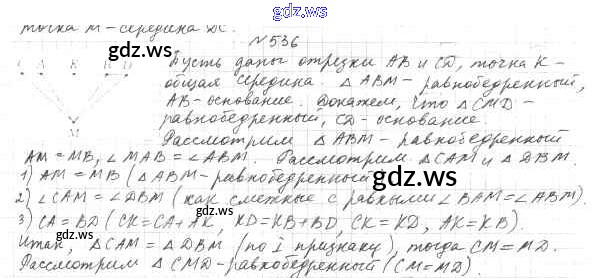 gdz.ws
точка М - середина DC.
№536
gdz.ws
C A K B D
M
Пусть даны отрезки AB и CD, точка K -
общая середина. △ABM - равнобедренный,
AB - основание. Докажем, что △CMD -
равнобедренный, CD - основание.
Рассмотрим △ABM - равнобедренный
AM = MB, ∠MAB = ∠ABM. Рассмотрим △CAM и △DBM.
1) AM = MB (△ABM - равнобедренный)
gdz.ws
2) ∠CAM = ∠DBM (как смежные с равными ∠BAM = ∠ABM).
3) CA = BD (CK = CA + AK, KD = KB + BD, CK = KD, AK = KB).
Итак, △CAM = △DBM (по I признаку), тогда CM = MD.
Рассмотрим △CMD - равнобедренный (CM = MD).
gdz.ws
gdz.ws